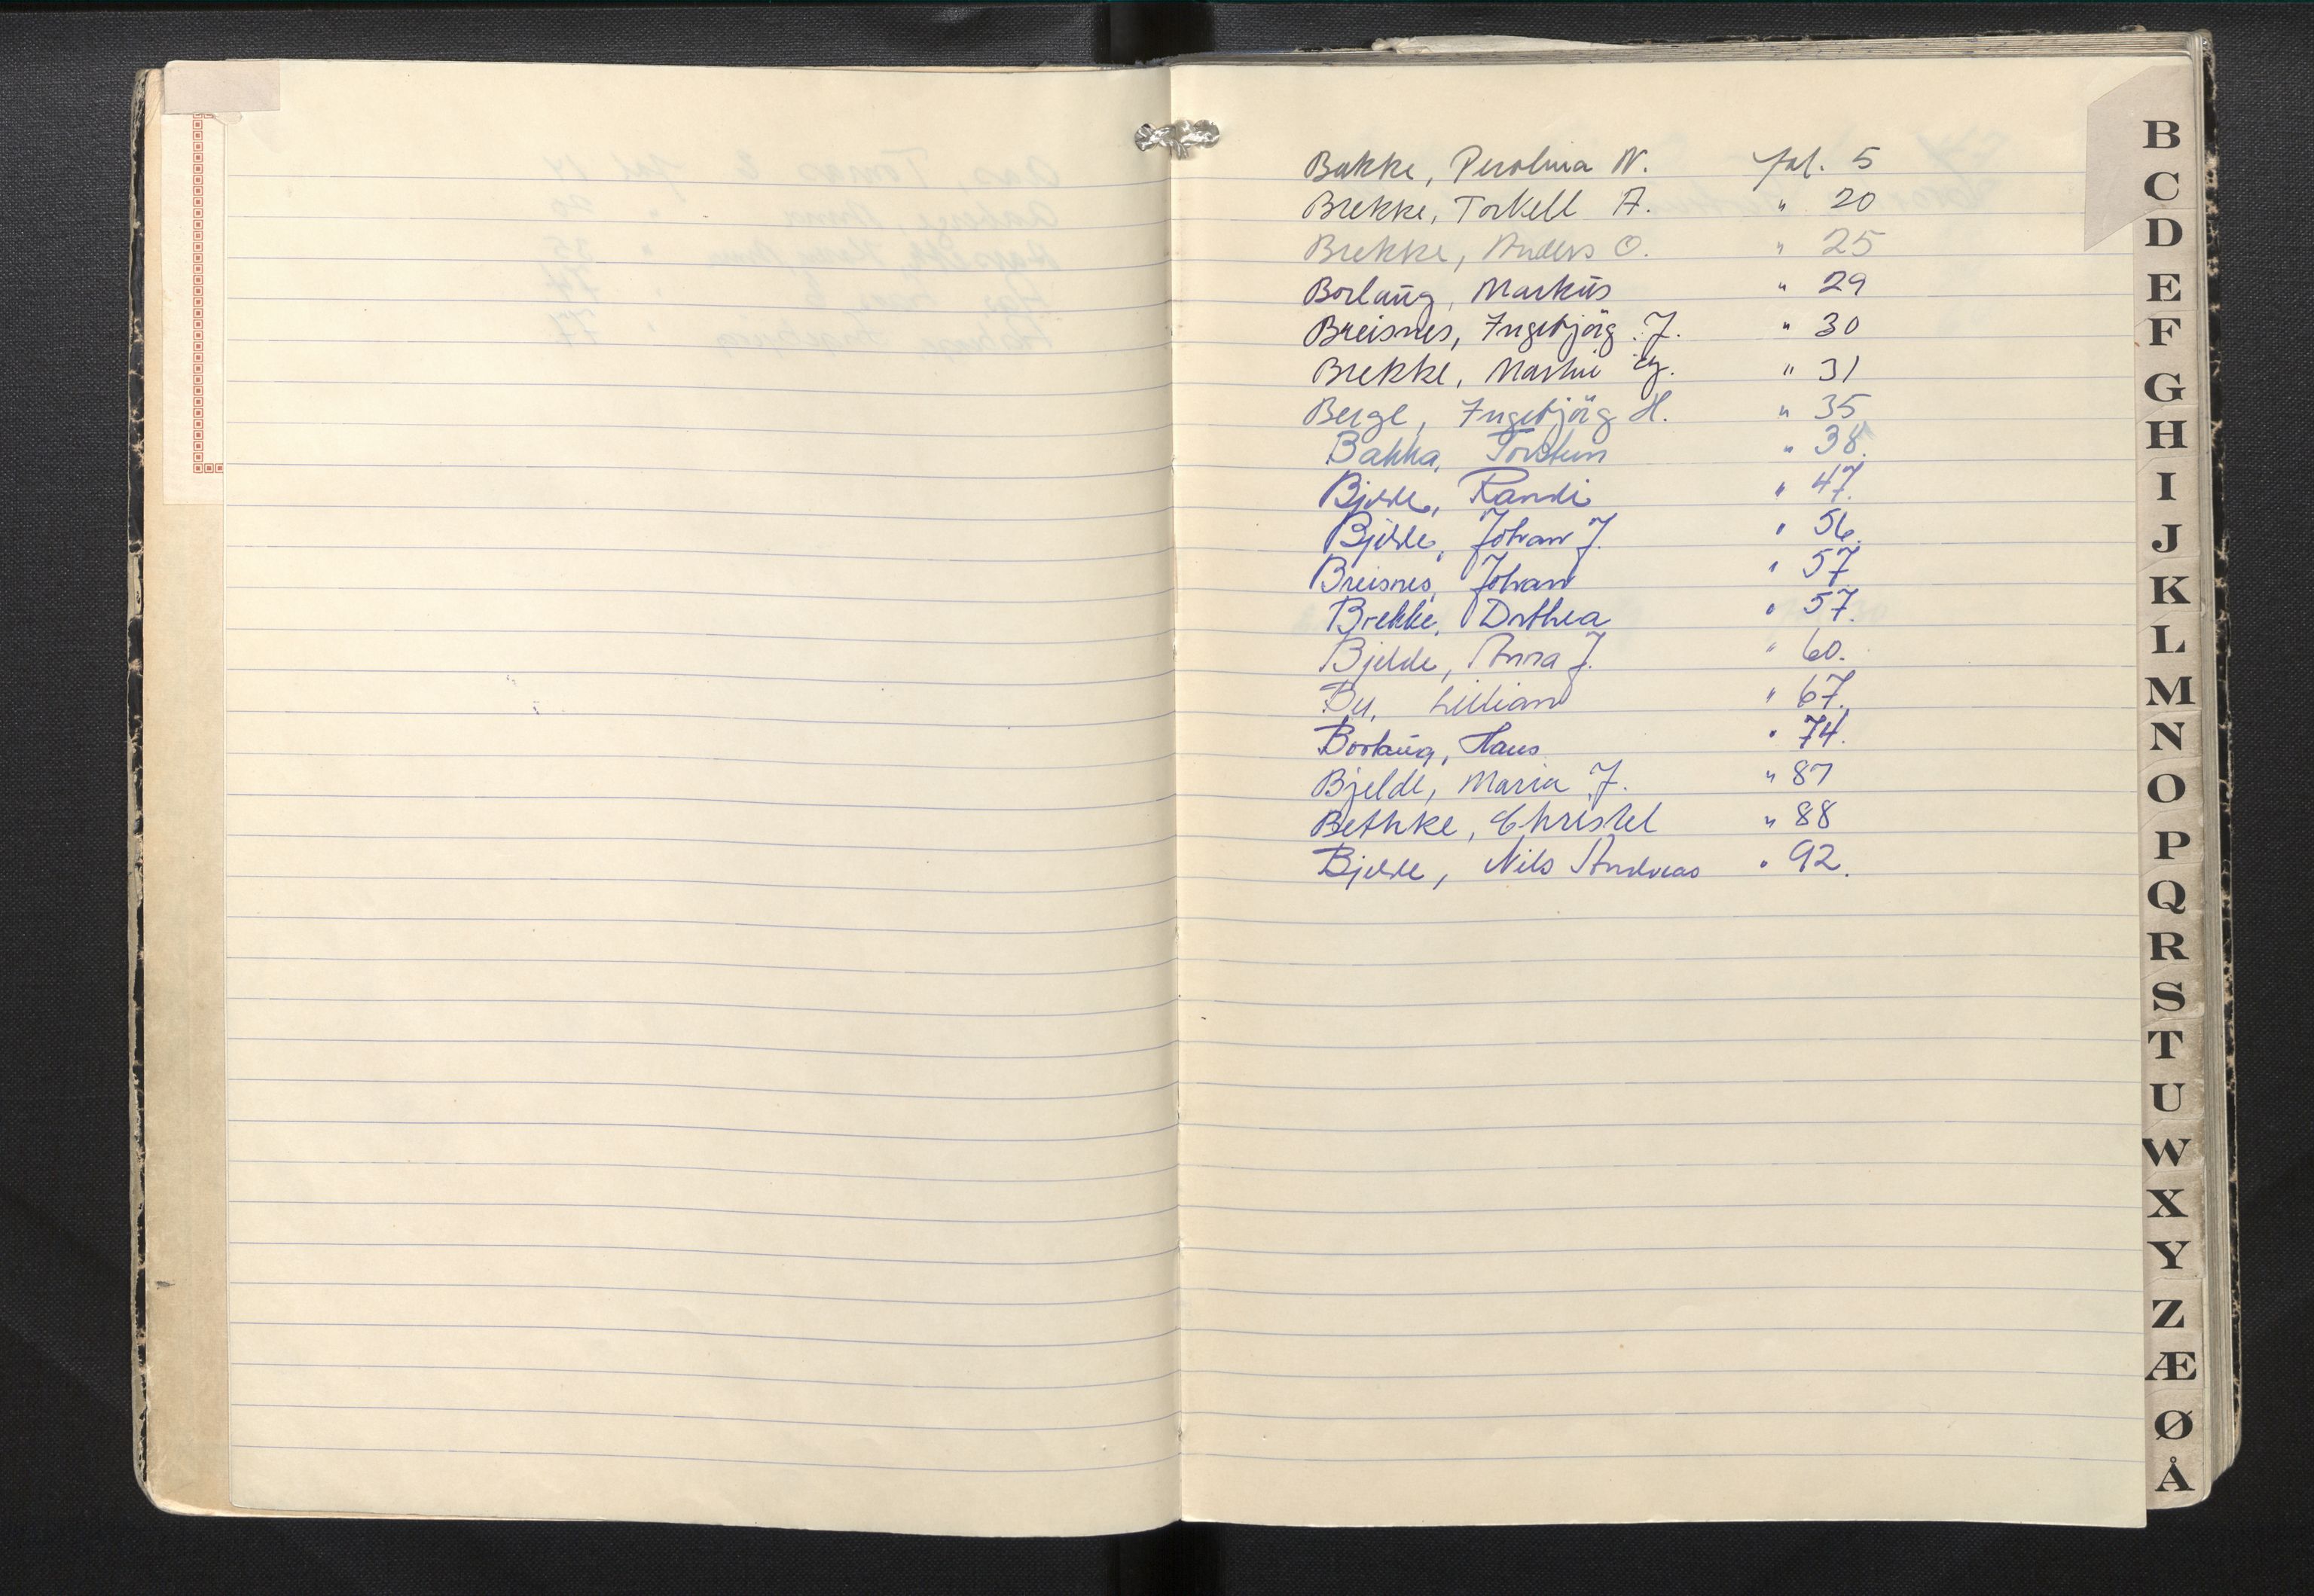 Bakke, Perolina N. fol. 5
Brekke, Torkell A. " 20
Brekke, Anders O. " 25
Borlaug, Markus " 29
Breisnes, Ingebjörg J. " 30
Brekke, " 31
Berge, Ingebjörg H. " 35
Bakka, Torstein " 38.
Bjelde, Randi " 47.
Bjelde, Johan J. " 56.
Breisnes, Johan " 57
Brekke, Dorthea " 57.
Bjelde, Anna J. " 60.
Bu, Lillian " 67.
Borlaug, Hans " 74.
Bjelde, Maria J. " 87
Bethke, Christel " 88
Bjelde, Nils Andreas " 92.
B
C
D
E
F
G
H
I
J
K
L
M
N
O
P
Q
R
S
T
U
W
X
Y
Z
Æ
Ø
Å